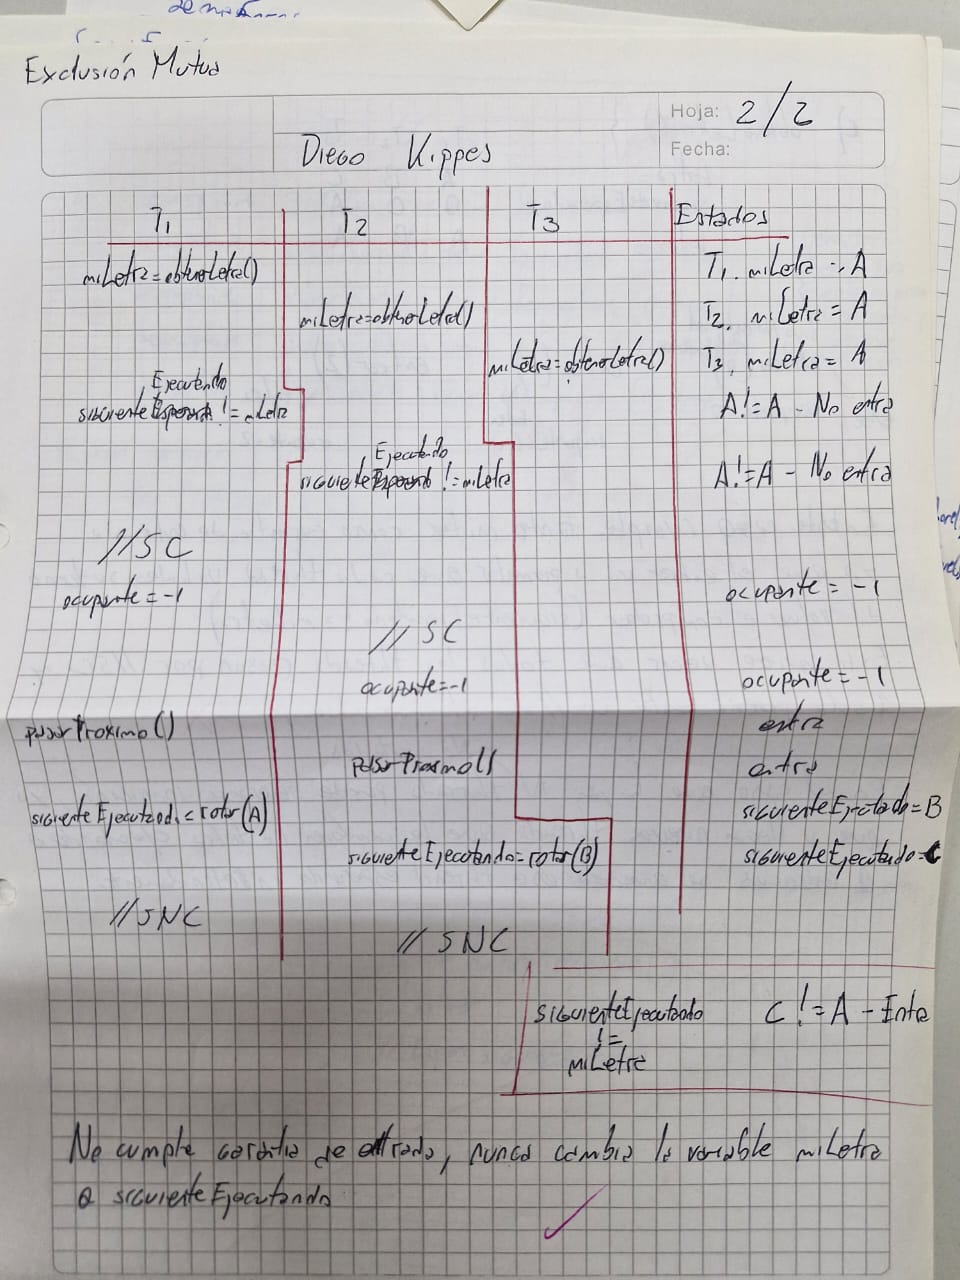 Exclusión Mutua
Hoja: 2/2
Diego Kippes
Fecha:
T1 T2 T3 Estados
miLetra=obtenerLetra() T1. miLetra = A
miLetra=obtenerLetra() T2. miLetra = A
miLetra=obtenerLetra() T3. miLetra = A
Ejecutando
siguiente != miLetra A!=A - No entra
Ejecutando
siguiente != miLetra A!=A - No entra
//SC
ocupante = -1 ocupante = -1
// SC
ocupante=-1 ocupante = -1
pasarProximo() entra
pasarProximo() entra
siguienteEjecutando=rotar(A) siguienteEjecutado=B
siguienteEjecutando=rotar(B) siguienteEjecutado=C
//SNC
// SNC
siguienteEjecutado C != A - Entra
!=
miLetra
No cumple garantia de entrada, nunca cambia la variable miLetra
a siguienteEjecutando